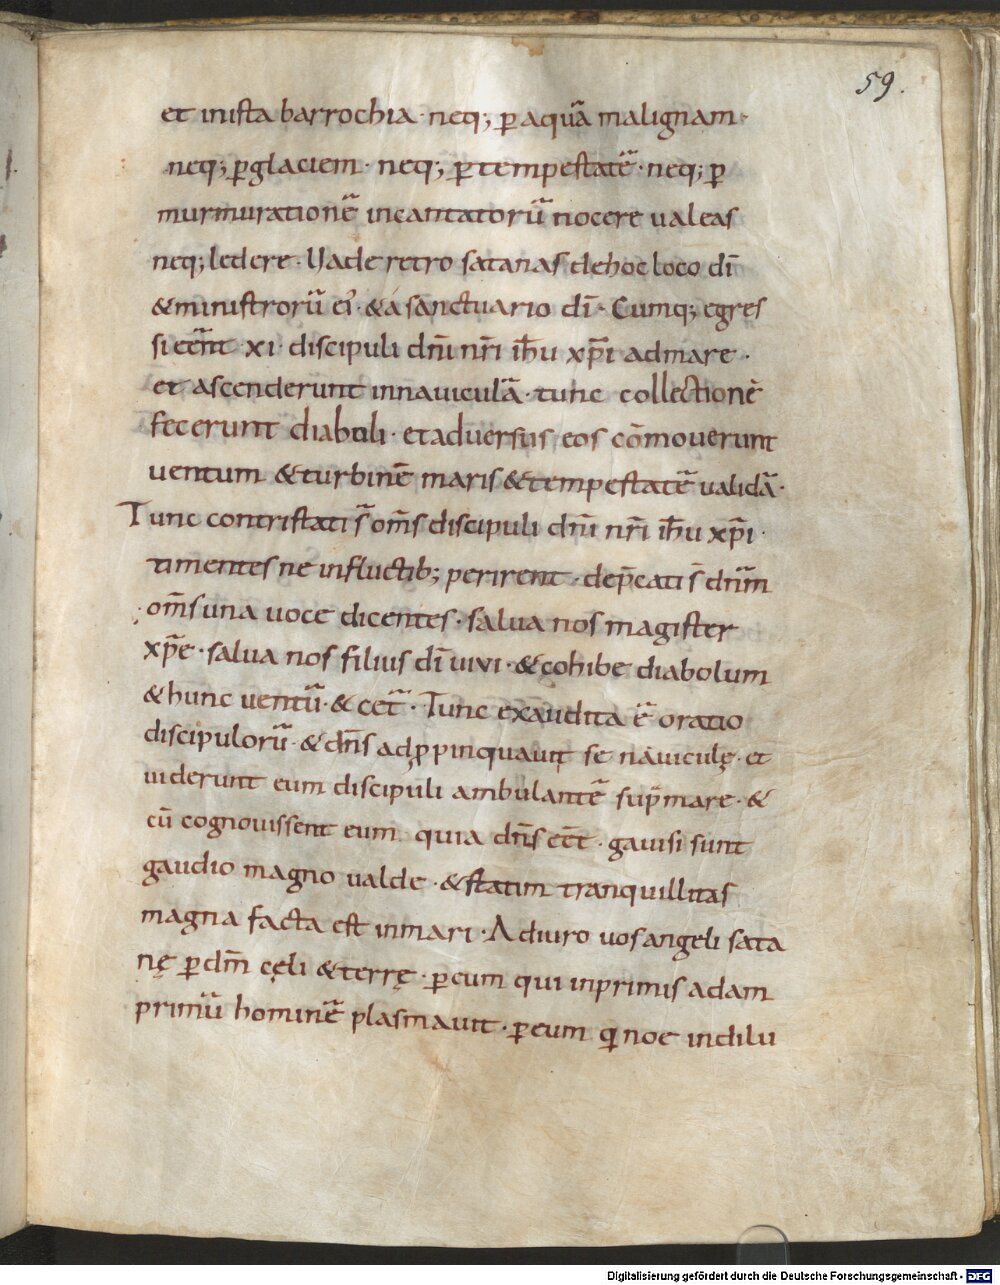 59.
et inista barrochia · neq; ꝑ aquā malignam ·
neq; ꝑglaciem · neq; ꝑtempestatē · neq; ꝑ
murmurationē incantatorū nocere valeas
neq; ledere · Vade retro satanas dehoc loco dī
&ministrorū ei᾽ · &a sanctuario dī · Cumq; egres
si eēnt · xi · discipuli dn̄i nr̄i ih̄u xp̄i admare ·
et ascenderunt innauiculā · tunc collectionē
fecerunt diaboli · etaduersus eos cōmouerunt
ventum &turbinē maris &tempestatē validā ·
Tunc contristati s̄ om̄s discipuli dn̄i nr̄i ih̄u xp̄i ·
timentes ne influctib; perirent · dep̄cati s̄ dn̄m
om̄s una uoce dicentes · salua nos magister
xp̄e · salua nos filius dī uivi · &cohibe diabolum
&hunc ventū · & cet̄ · Tunc exaudita ē oratio
discipulorū · & dn̄s adꝓpinquauit se nauiculę · et
uiderunt eum discipuli ambulantē sup̄mare · &
cū cognouissent eum quia dn̄s eēt · gauisi sunt
gaudio magno ualde · &statim tranquillitas
magna facta est inmari · Adiuro uos angeli sata
nę ꝑ dm̄ cęli &terrę · ꝑ eum qui inprimis adam
primū hominē plasmauit · ꝑ eum q̄ noe indilu
Digitalisierung gefördert durch die Deutsche Forschungsgemeinschaft - DFG